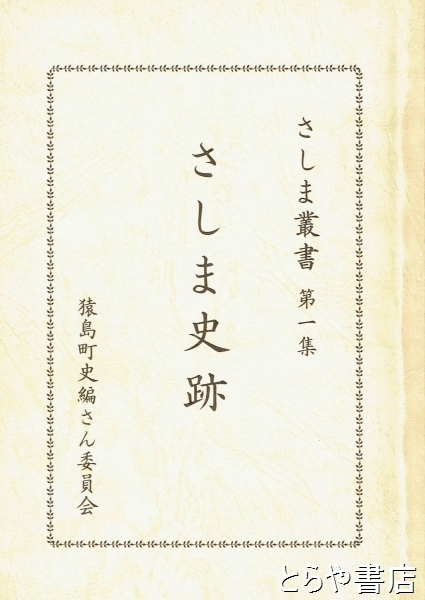 さしま叢書 第一集
さしま史跡
猿島町史編さん委員会
とらや書店